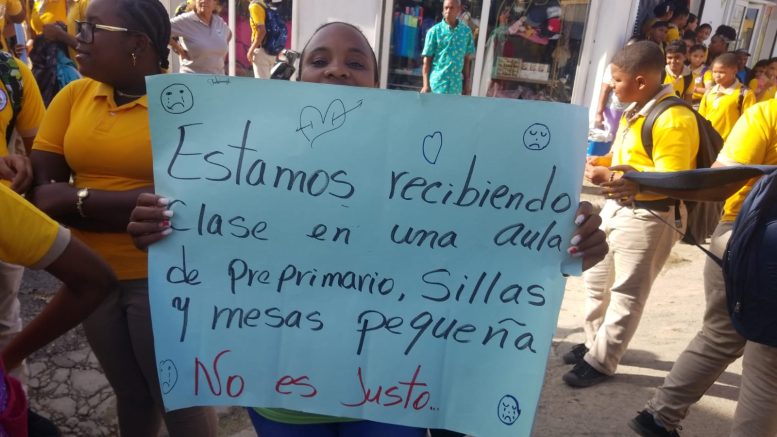 Estamos recibiendo
Clase en una aula
de preprimario, Sillas
y mesas pequeña
No es Justo...